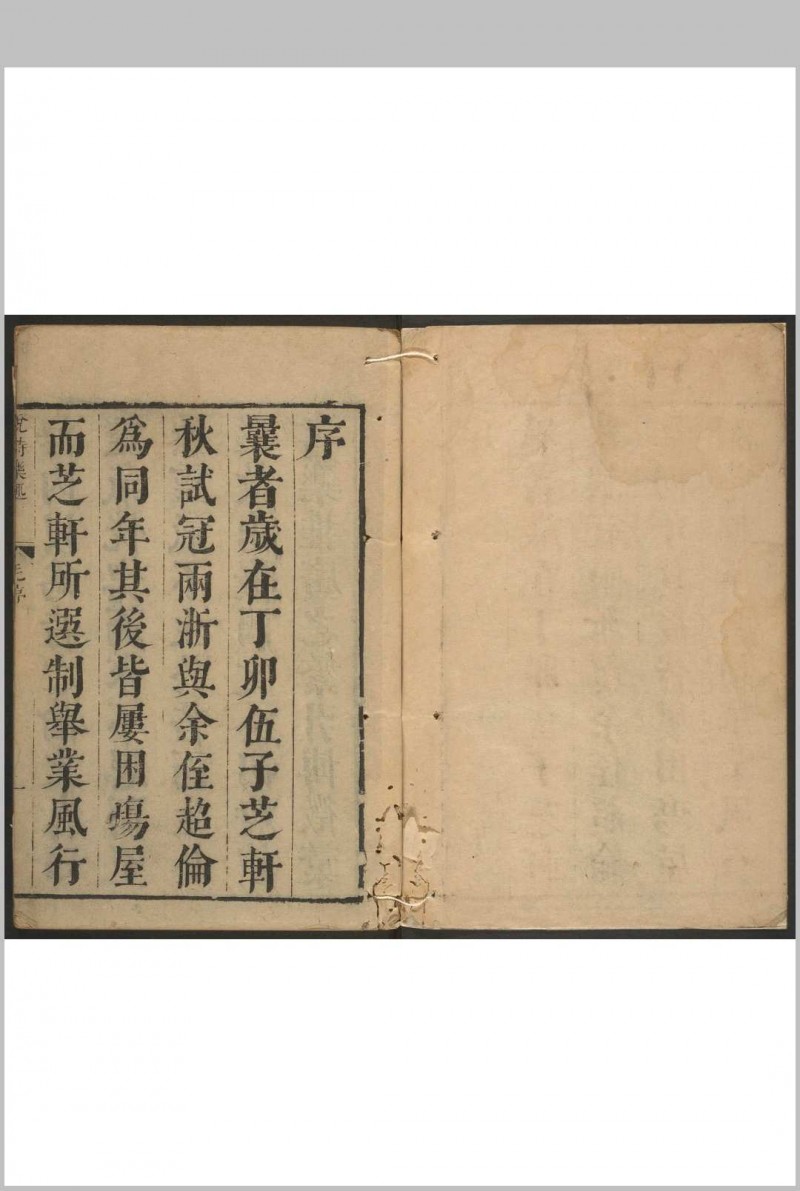 序
曩者歲在丁卯伍子芝軒
秋試冠兩浙與余侄超倫
為同年其後皆屢困場屋
而芝軒所選制舉業風行
說詩樂趣
毛序
一